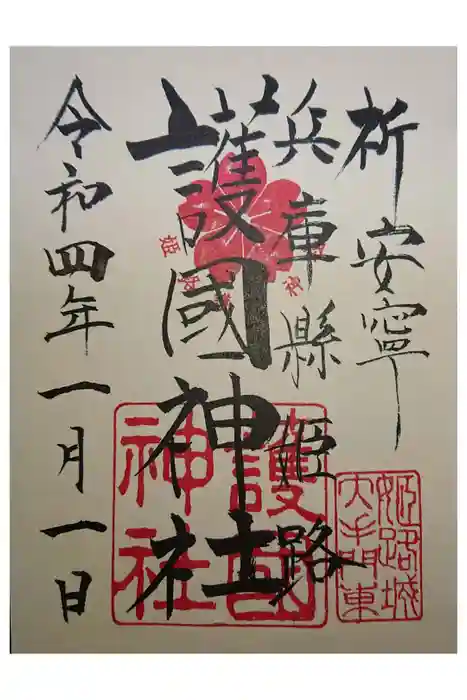 祈安寧
兵庫縣姫路
護國神社
令和四年一月一日
護国
神社
姫路城
大手門東